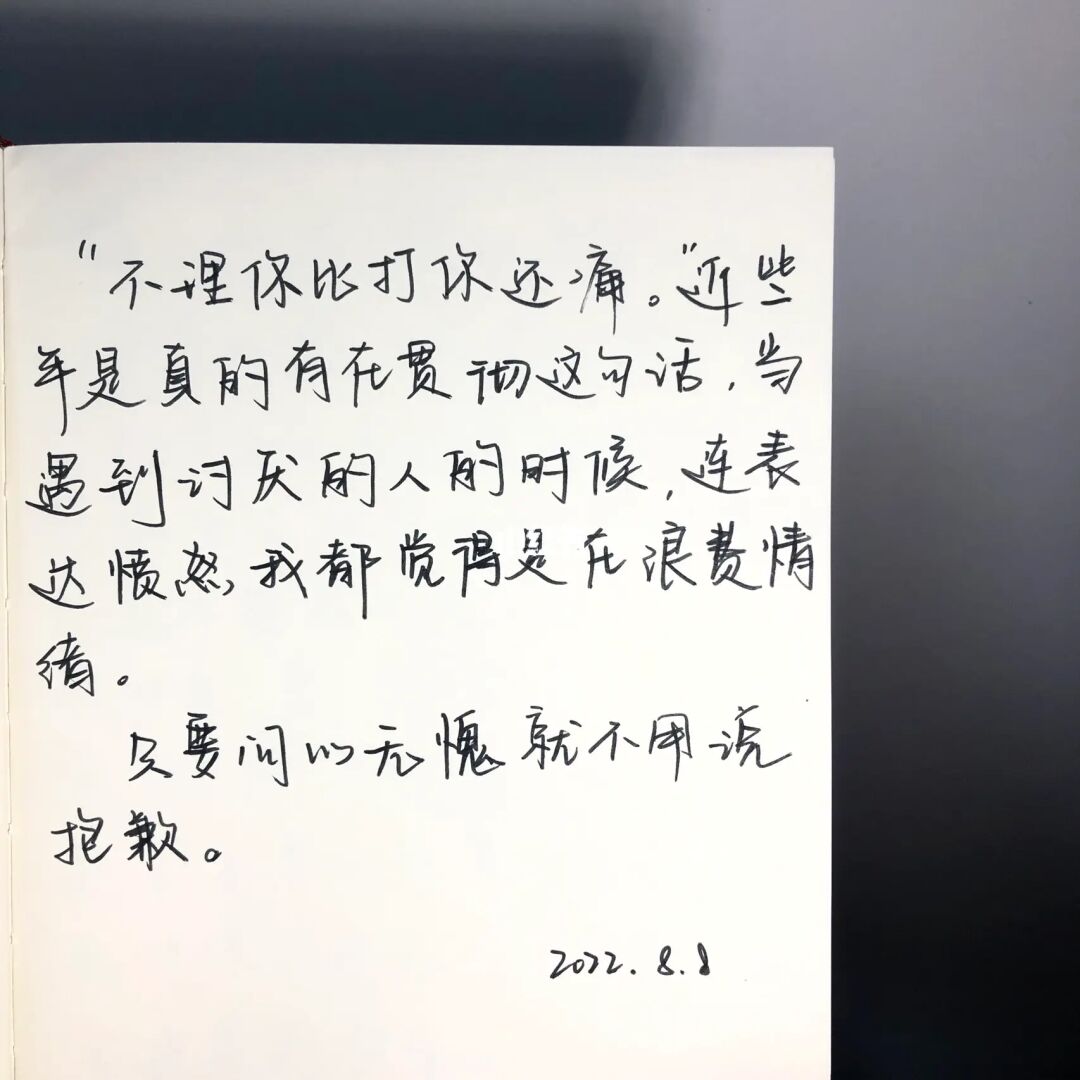 “不理你比打你还痛。”近些
年是真的有在贯彻这句话,当
遇到讨厌的人的时候,连表
达愤怒,我都觉得是在浪费情
绪。
只要问心无愧就不用说
抱歉。
2022.8.8